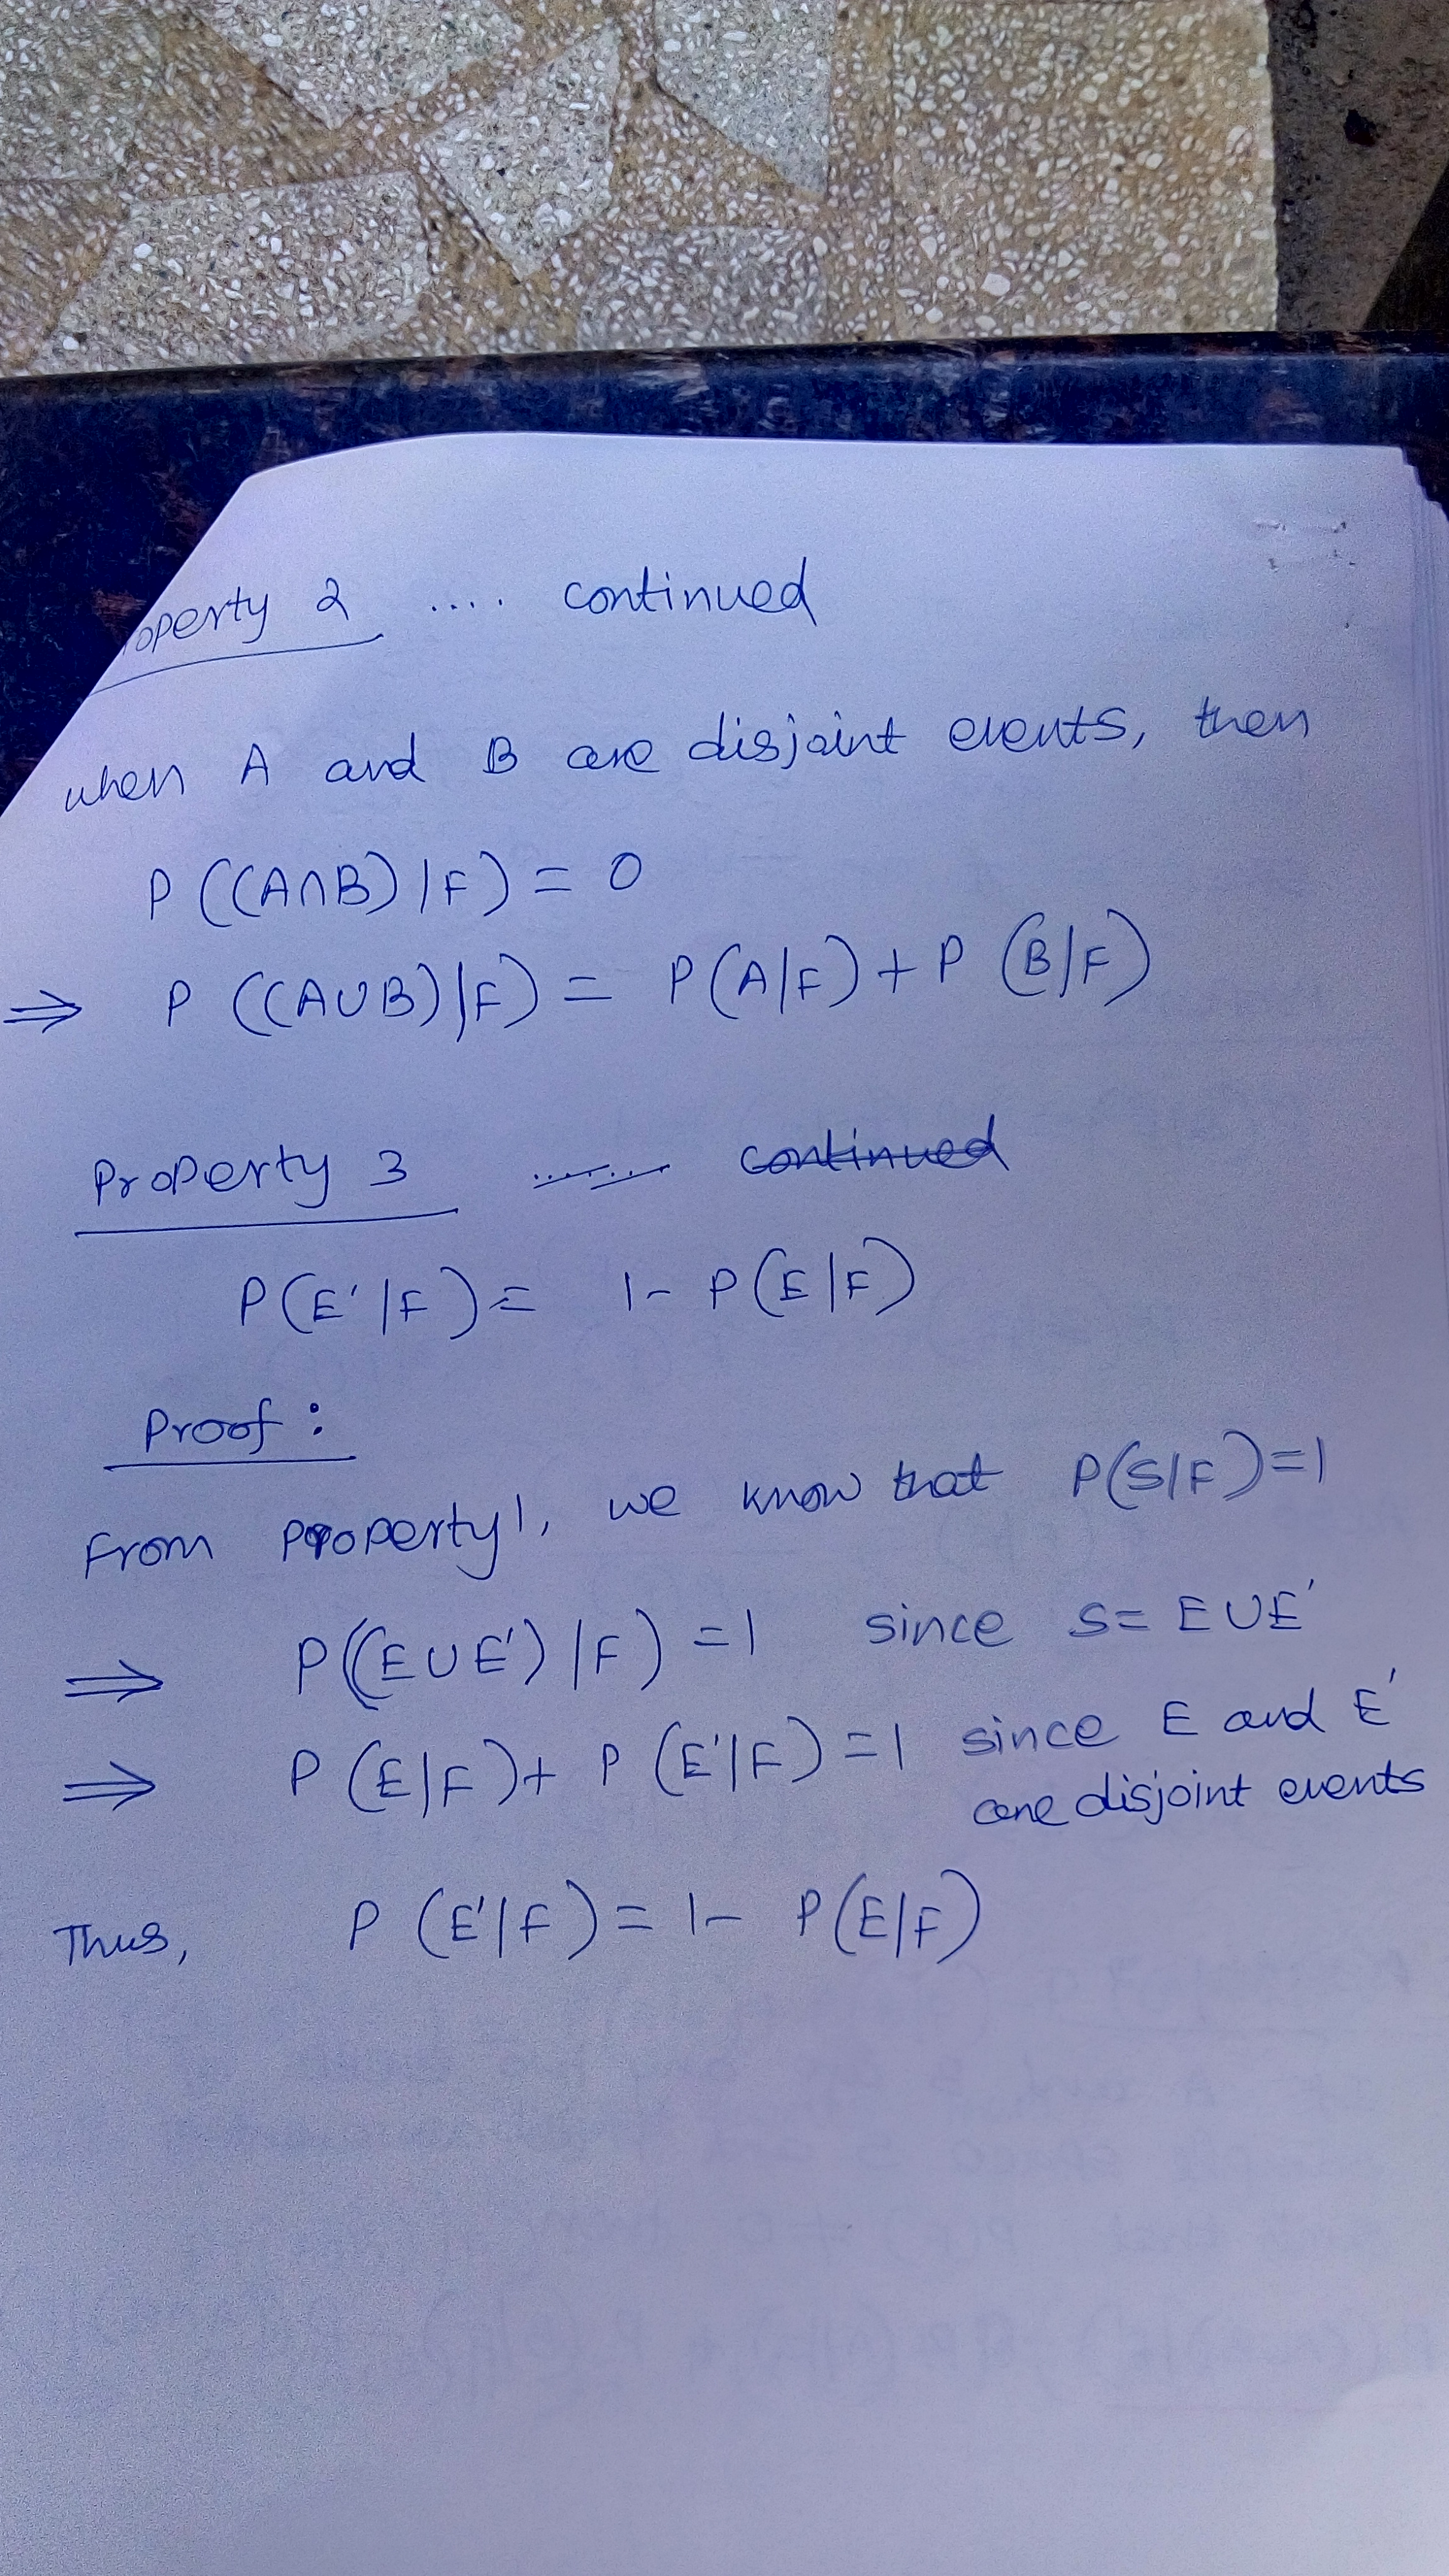 operty 2 .... continued
when A and B are disjoint events, then
P ((A∩B) | F) = 0
⇒ P ((A∪B) | F) = P(A|F) + P (B|F)
Property 3 ....... continued
P(E' | F) = 1 - P(E|F)
Proof :
From Property 1, we know that P(S|F) = 1
⇒ P((E∪E') | F) = 1 since S = E∪E'
⇒ P (E|F) + P (E'|F) = 1 since E and E'
are disjoint events
Thus, P (E'|F) = 1 - P(E|F)